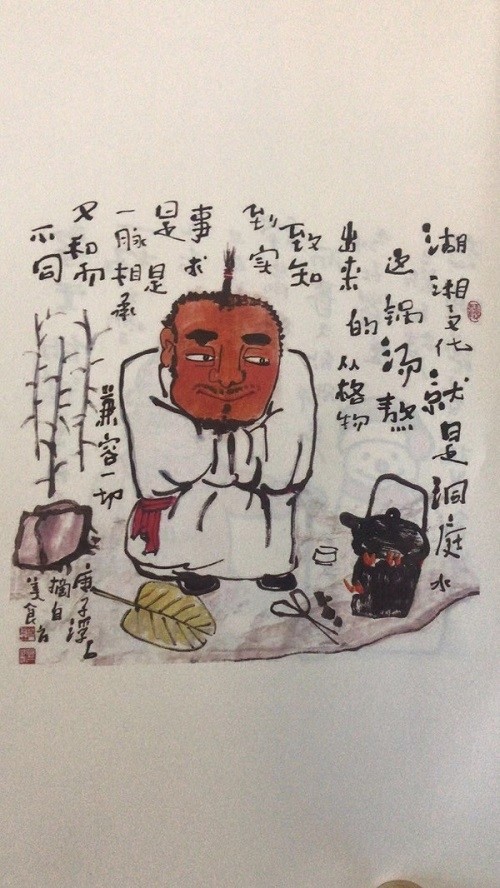 湖湘文化就是洞庭水
这锅汤熬
出来
的从格物
致知
到实
事求
是是
一脉相承
又和而
不同
兼容一切
庚子浮上
摘自
美食